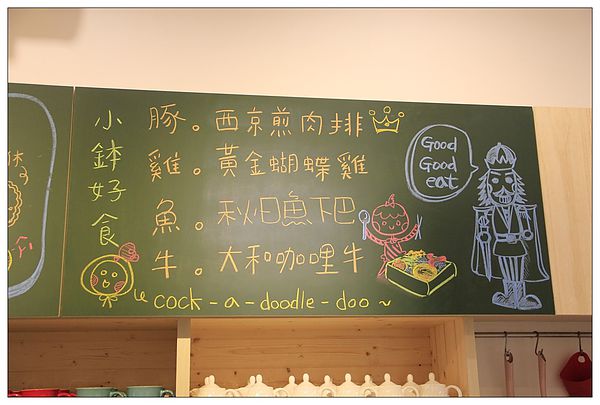 小缽好食
豚。西京煎肉排
雞。黃金蝴蝶雞
魚。秋日魚下巴
牛。大和咖哩牛
cock-a-doodle-doo~
Good
Good
eat
休